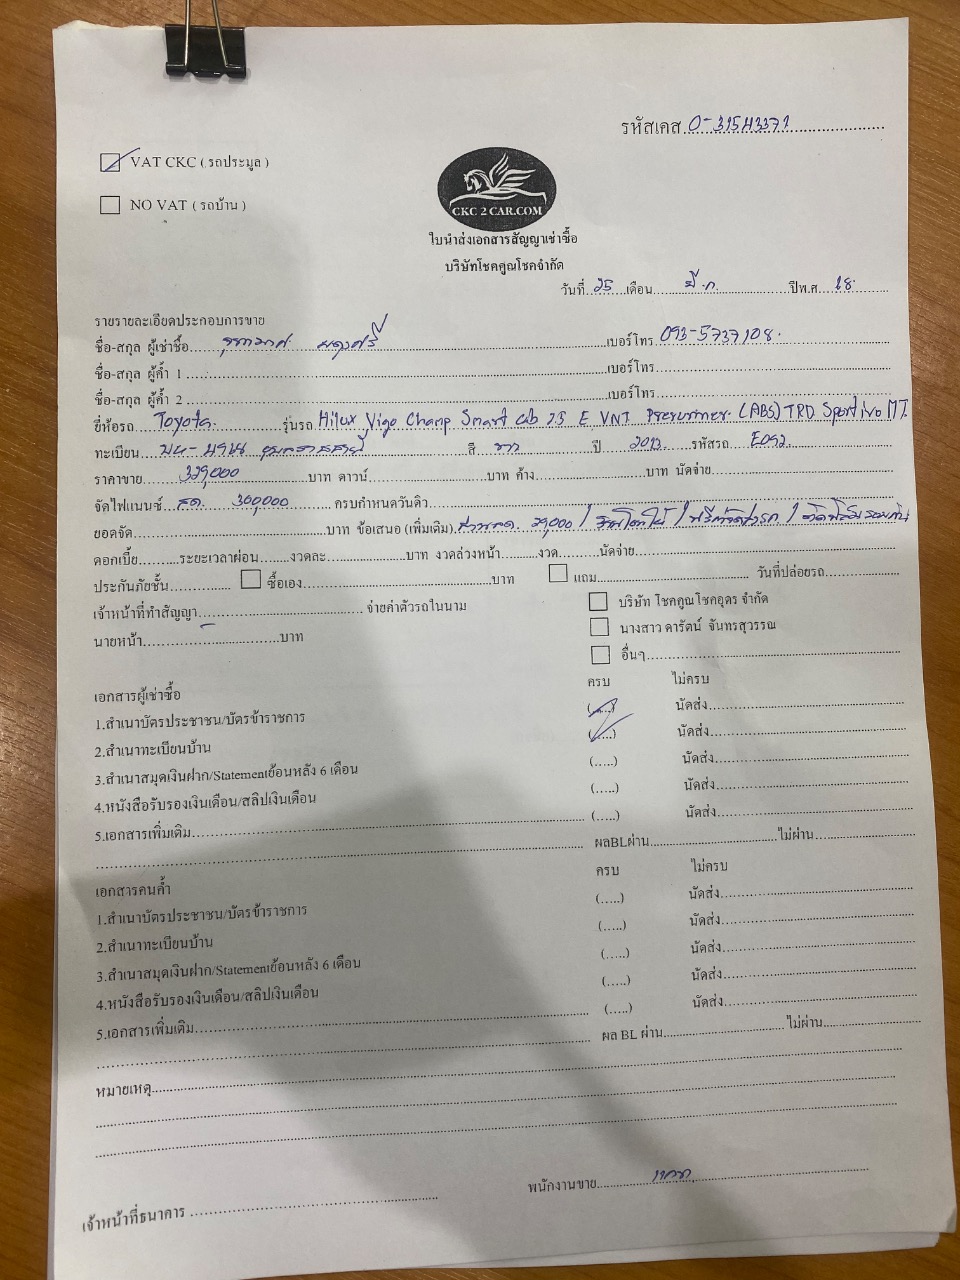 รหัสเคส 0-31543371
VAT CKC ( รถประมูล )
NO VAT ( รถบ้าน )
CKC 2 CAR.COM
ใบนำส่งเอกสารสัญญาเช่าซื้อ
บริษัทโชคคูณโชคจำกัด
วันที่ 25 เดือน มี.ค. ปีพ.ศ 68.
รายรายละเอียดประกอบการขาย
ชื่อ-สกุล ผู้เช่าซื้อ เบอร์โทร 093-5737108.
ชื่อ-สกุล ผู้ค้ำ 1 เบอร์โทร
ชื่อ-สกุล ผู้ค้ำ 2 เบอร์โทร
ยี่ห้อรถ Toyota. รุ่นรถ Hilux Vigo Champ Smart Cab 2.5 E VNT Prerunner (ABS) TRD Sportivo MT.
ทะเบียน สี ขาว ปี 2013 รหัสรถ E092
ราคาขาย 329,000 บาท ดาวน์ บาท ค้าง บาท นัดจ่าย
จัดไฟแนนซ์ สด. 300,000 ครบกำหนดวันดิว
ยอดจัด บาท ข้อเสนอ (เพิ่มเติม) ส่วนลด. 29,000 /
ดอกเบี้ย ระยะเวลาผ่อน งวดละ บาท งวดล่วงหน้า งวด นัดจ่าย
ประกันภัยชั้น ซื้อเอง บาท แถม วันที่ปล่อยรถ
เจ้าหน้าที่ทำสัญญา จ่ายค่าตัวรถในนาม บริษัท โชคคูณโชคอุดร จำกัด
นายหน้า บาท นางสาว ดารัตน์ จันทรสุวรรณ
อื่นๆ
เอกสารผู้เช่าซื้อ ครบ ไม่ครบ
1.สำเนาบัตรประชาชน/บัตรข้าราชการ (.....) นัดส่ง
2.สำเนาทะเบียนบ้าน (.....) นัดส่ง
3.สำเนาสมุดเงินฝาก/Statementย้อนหลัง 6 เดือน (.....) นัดส่ง
4.หนังสือรับรองเงินเดือน/สลิปเงินเดือน (.....) นัดส่ง
5.เอกสารเพิ่มเติม (.....) นัดส่ง
ผลBLผ่าน ไม่ผ่าน
เอกสารคนค้ำ ครบ ไม่ครบ
1.สำเนาบัตรประชาชน/บัตรข้าราชการ (.....) นัดส่ง
2.สำเนาทะเบียนบ้าน (.....) นัดส่ง
3.สำเนาสมุดเงินฝาก/Statementย้อนหลัง 6 เดือน (.....) นัดส่ง
4.หนังสือรับรองเงินเดือน/สลิปเงินเดือน (.....) นัดส่ง
5.เอกสารเพิ่มเติม (.....) นัดส่ง
ผล BL ผ่าน ไม่ผ่าน
หมายเหตุ
พนักงานขาย
เจ้าหน้าที่ธนาคาร